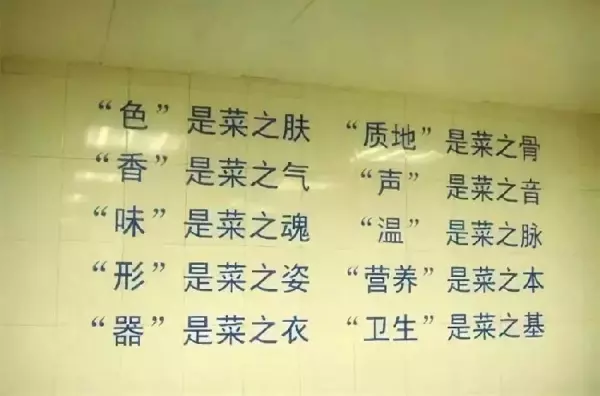 “色”是菜之肤
“香”是菜之气
“味”是菜之魂
“形”是菜之姿
“器”是菜之衣
“质地”是菜之骨
“声”是菜之音
“温”是菜之脉
“营养”是菜之本
“卫生”是菜之基